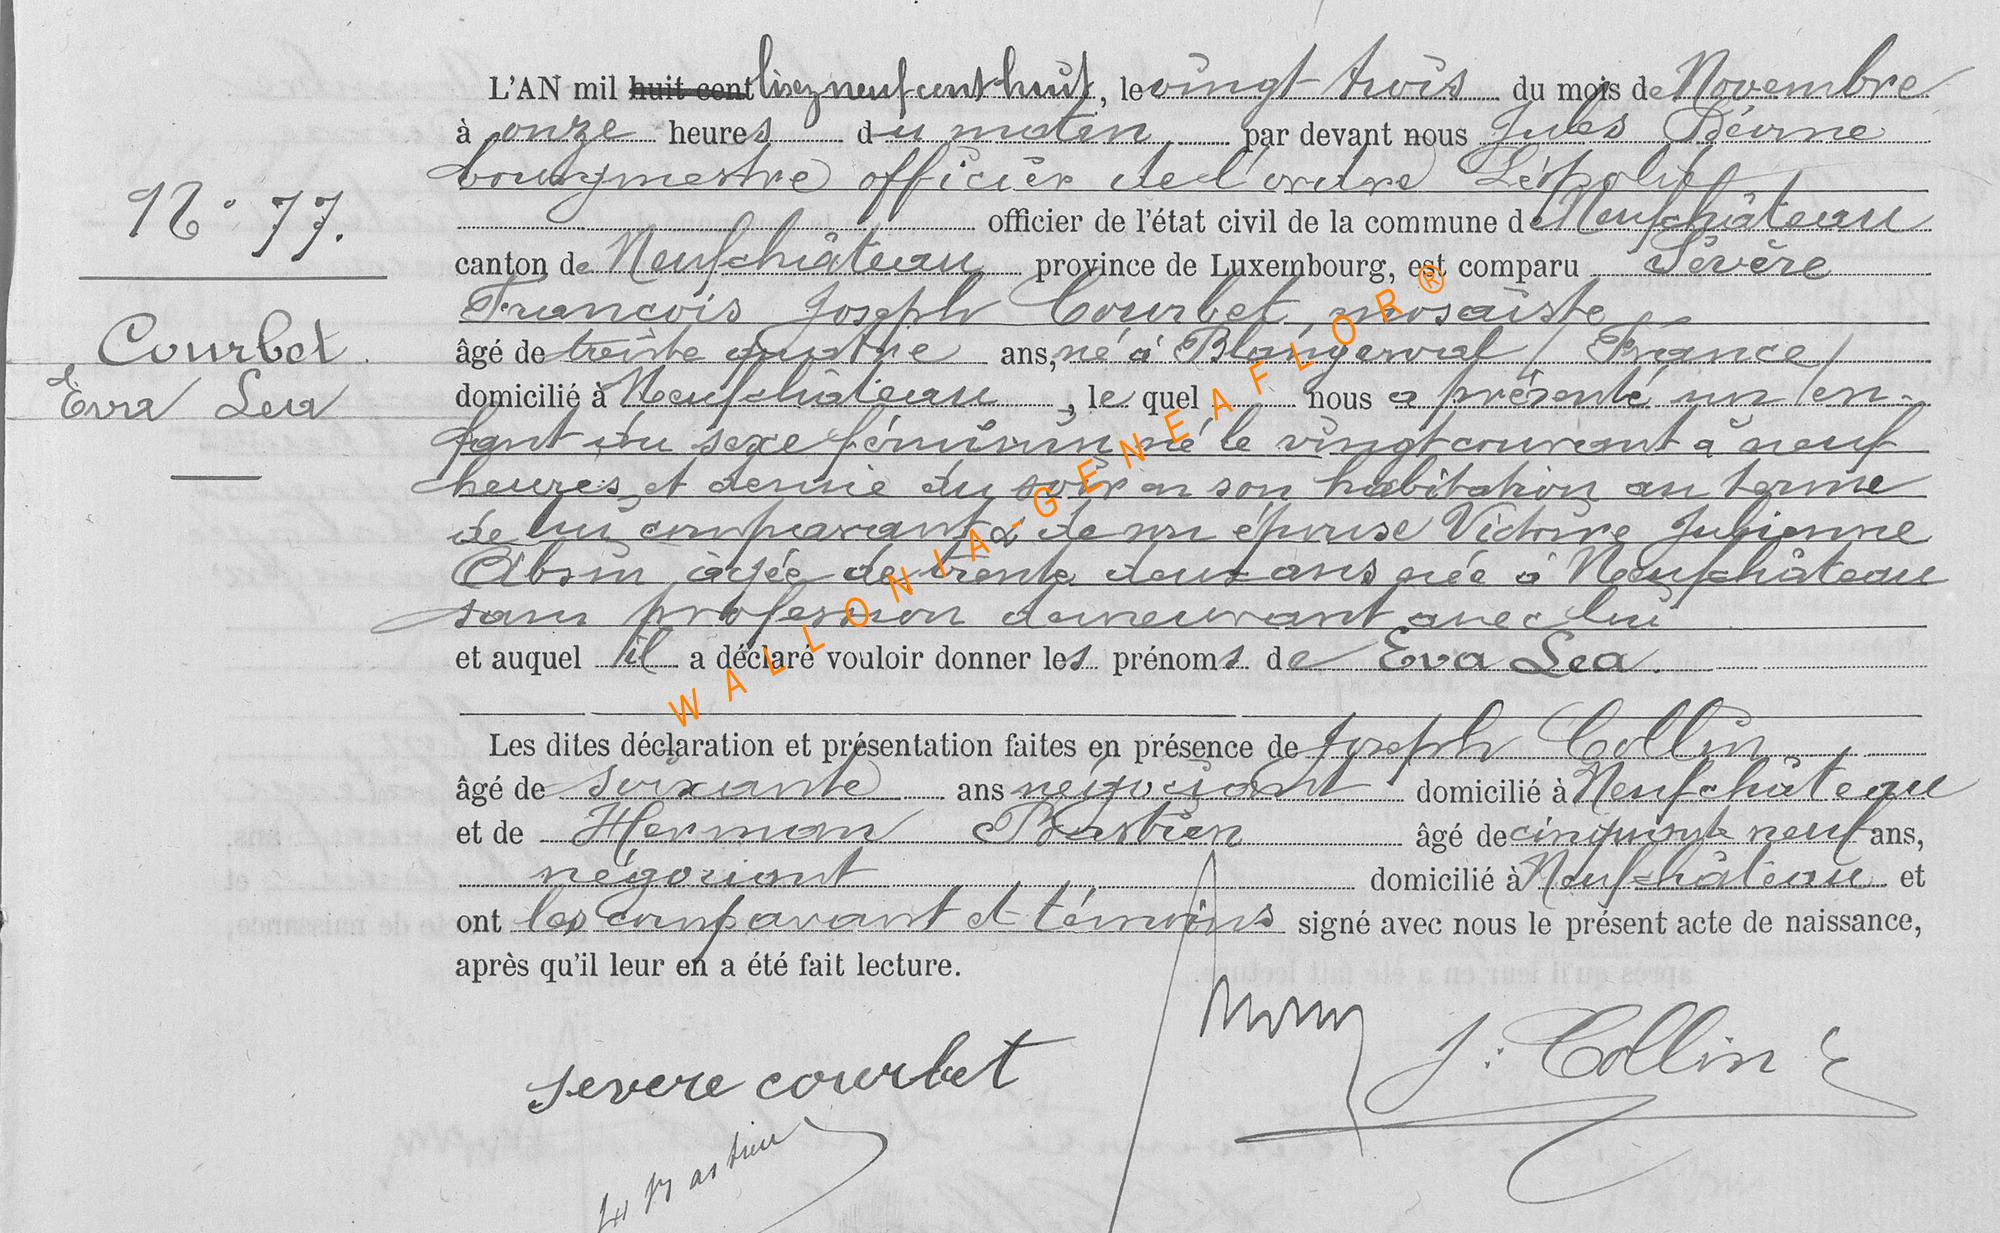 L'AN mil huit cent lisez neuf cent huit, le vingt trois du mois de Novembre
à onze heures du matin par devant nous Jules
bourgmestre officier de l'ordre Léopold
officier de l'état civil de la commune de Neufchâteau
N° 77.
canton de Neufchâteau province de Luxembourg, est comparu Sévère
François Joseph Courbet, mosaïste
Courbet
âgé de trente quatre ans, né à Blangerval (France)
Eva Lea
domicilié à Neufchâteau, le quel nous a présenté un en-
fant du sexe féminin né le vingt courant à neuf
heures et demie du soir en son habitation au terme
de lui comparant & de son épouse Victoire Julienne
âgée de trente deux ans née à Neufchâteau
sans profession demeurant avec lui
et auquel il a déclaré vouloir donner les prénoms de Eva Lea.
Les dites déclaration et présentation faites en présence de Joseph Collin
âgé de soixante ans négociant domicilié à Neufchâteau
et de Herman Bastien âgé de cinquante neuf ans,
négociant domicilié à Neufchâteau et
ont les comparant et témoins signé avec nous le présent acte de naissance,
après qu'il leur en a été fait lecture.
severe courbet
J. Collin
H Bastien
WALLONIA-GENEAFLOR®